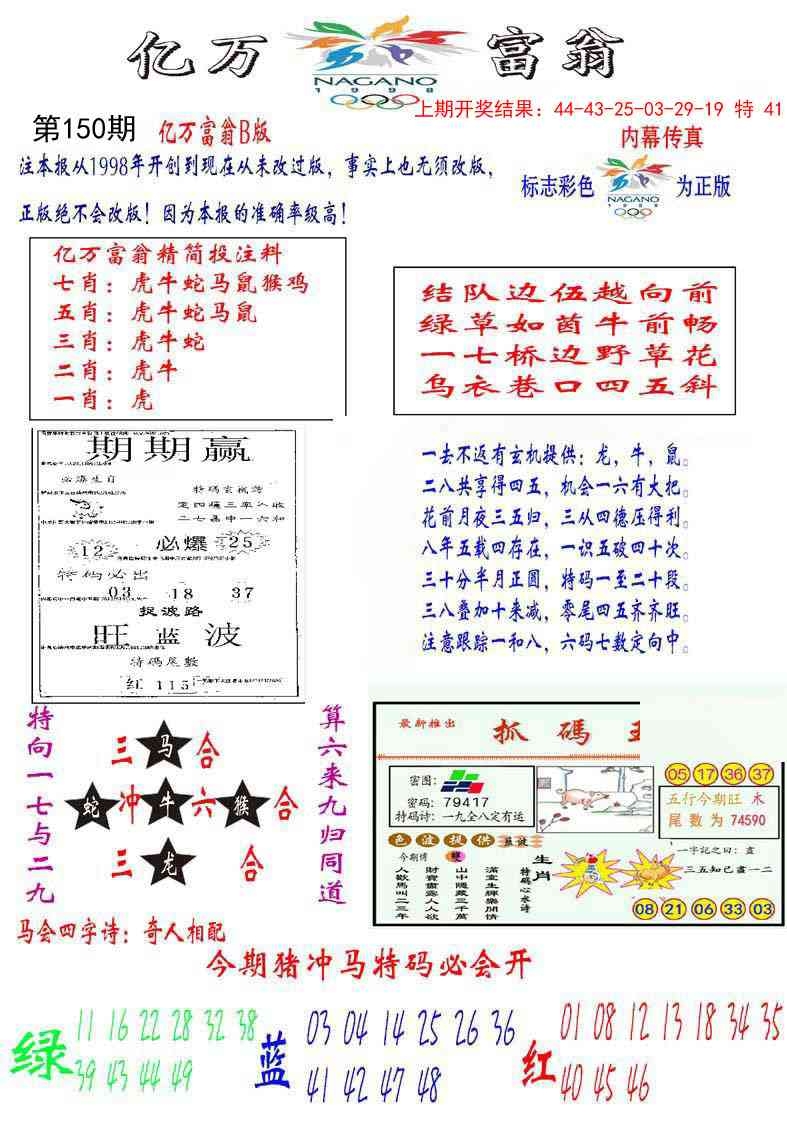 亿万富翁
NAGANO
1998
上期开奖结果：44-43-25-03-29-19 特 41
第150期 亿万富翁B版
内幕传真
注本报从1998年开创到现在从未改过版，事实上也无须改版，
正版绝不会改版！因为本报的准确率级高！
标志彩色 NAGANO 1998 为正版
亿万富翁精简投注料
七肖：虎牛蛇马鼠猴鸡
五肖：虎牛蛇马鼠
三肖：虎牛蛇
二肖：虎牛
一肖：虎
结队边伍越向前
绿草如茵牛前畅
一七桥边野草花
乌衣巷口四五斜
期期赢
必爆生肖
特碼玄机诗
二七惠中一六和
12 必爆 25
特码必出
03 18 37
捉波路
旺蓝波
特碼尾數
红 115
一去不返有玄机提供：龙，牛，鼠。
二八共享得四五，机会一六有大把。
花前月夜三五归，三从四德压得利。
八年五载四存在，一识五破四十次。
三十分半月正圆，特码一至二十段。
三八叠加十来减，零尾四五齐齐旺。
注意跟踪一和八，六码七数定向中。
特向一七与二九
三马合
蛇冲牛六猴合
三龙合
算六来九归同道
最新推出 抓碼王
密图：
密码：79417
特码诗：一九全八定有运
色波提供 蓝波
今期博 雙
人歡馬叫二三年
財寶盡露人人欲
山中隱藏三千萬
滿室生輝樂開情
特碼心水诗
生肖
05 17 36 37
五行今期旺 木
尾数为 74590
一字記之曰：盡
三五知己盡一二
08 21 06 33 03
马会四字诗：奇人相配
今期猪冲马特码必会开
绿 11 16 22 28 32 38
39 43 44 49
蓝 03 04 14 25 26 36
41 42 47 48
红 01 08 12 13 18 34 35
40 45 46